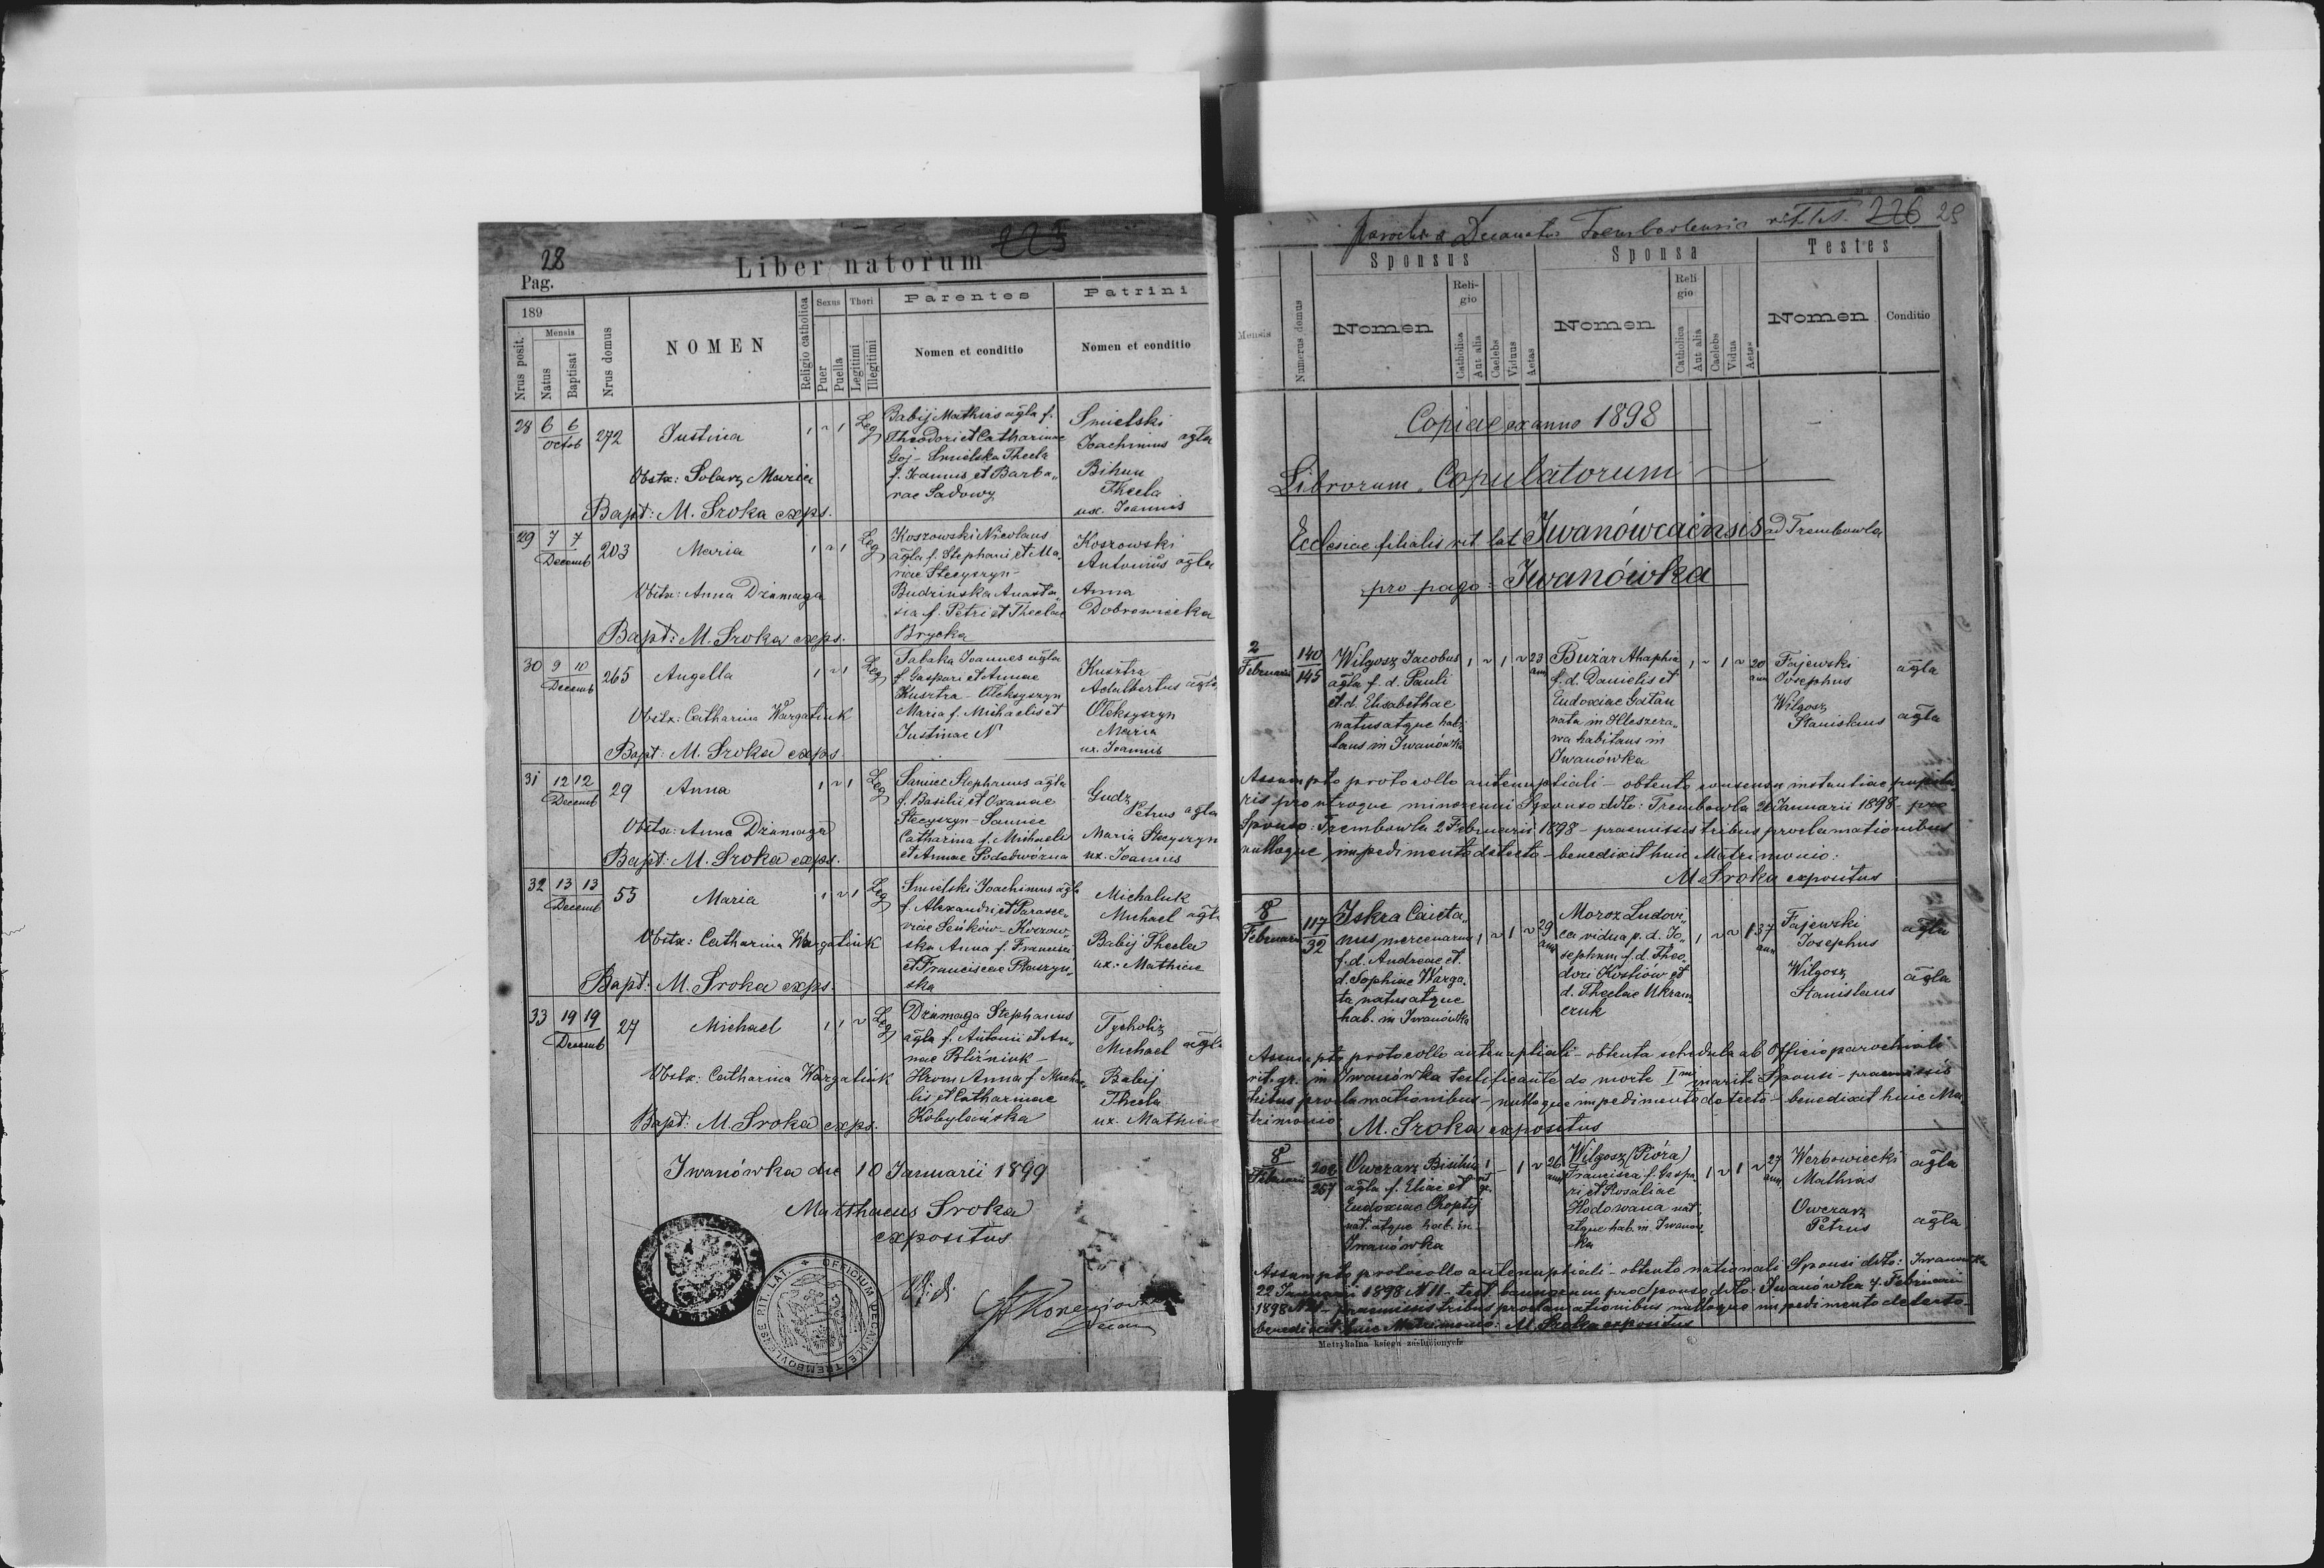 28
225
Pag.
Liber natorum
189
Nrus posit.
Mensis
Natus
Baptisat
Nrus domus
NOMEN
Religio catholica
Sexus
Puer
Puella
Thori
Legitimi
Illegitimi
Parentes
Nomen et conditio
Patrini
Nomen et conditio
28 6 6 Octob 272 Justina 1 ~ 1 Leg
Obstx: Solarz Maria
Bapt: M. Sroka exps.
Babij Mathias agla f.
Theodori et Catharinae
Goj - Smielska Thecla
f. Joannis et Barba„
rae Sadowy
Smielski
Joachimus agla
Bihun
Thecla
ux. Joannis
29 7 7 Decemb 203 Maria 1 ~ 1 Leg
Obstx: Anna Dzamaga
Bapt: M. Sroka exps.
Koszowski Nicolaus
agla f. Stephani et Ma„
riae Stecyszyn -
Budzinska Anasta„
sia f. Petri et Theclae
Brycka
Koszowski
Antonius agla
Anna
Dobrowiecka
30 9 10 Decemb 265 Angella 1 ~ 1 Leg
Obstx: Catharina Wargatiuk
Bapt: M. Sroka exps.
Tabaka Joannes agla
f. Gaspari et Annae
Kusztra - Oleksyszyn
Maria f. Michaelis et
Justinae N
Kusztra
Adalbertus agla
Oleksyszyn
Maria
ux. Joannis
31 12 12 Decemb 29 Anna 1 ~ 1 Leg
Obstx: Anna Dzamaga
Bapt: M. Sroka exps.
Saniec Stephanus agla
f. Basilii et Oxanae
Stecyszyn - Saniec
Catharina f. Michaelis
et Annae Podobwórna
Gudz
Petrus agla
Maria Stecyszyn
ux. Joannis
32 13 13 Decemb 55 Maria 1 ~ 1 Leg
Obstx: Catharina Wargatiuk
Bapt: M. Sroka exps.
Smielski Joachimus agla
f. Alexandri et Parasce„
viae Seńków - Koszow„
ska Anna f. Francisci
et Franciscae Ptaszyń„
ska
Michaluk
Michael agla
Babij Thecla
ux: Mathiae
33 19 19 Decemb 27 Michael 1 1 ~ Leg
Obstx: Catharina Wargatiuk
Bapt: M. Sroka exps.
Dzamaga Stephanus
agla f. Antonii et An„
nae Bliźniuk -
Hrom Anna f. Michae„
lis et Catharinae
Kobylańska
Tycholiz
Michael agla
Babij
Thecla
ux. Mathiae
Iwanówka die 10 Januarii 1899
Matthaeus Sroka
expositus
OFFICIUM DECANALE TREMBOVLENSE RIT. LAT.
Vidi
parochia Decanatus Trembovlensis rit. lat. 226 29
Mensis
Numerus domus
Sponsus
Nomen
Religio
Catholica
Aut alia
Caelebs
Viduus
Aetas
Sponsa
Nomen
Religio
Catholica
Aut alia
Caelebs
Vidua
Aetas
Testes
Nomen
Conditio
Copiae ex anno 1898
Librorum Copulatorum
Ecclesiae filialis rit. lat. Iwanówcaensis ad Trembowla
pro pago: Iwanówka
2 Februarii 140 145
Wilgosz Jacobus
agla f. d. Pauli
et d. Elisabethae
natus atque habi„
tans in Iwanówka
1 ~ 1 ~ 23 ann
Bużar Ahaphia
f. d. Danielis et
Eudoxiae Gattan
nata in Hleszcza„
wa habitans in
Iwanówka
1 ~ 1 ~ 20 ann
Fajewski
Josephus agla
Wilgosz
Stanislaus agla
Assumpto protocollo antenuptiali - obtento consensu instantiae pupilla
ris pro utroque minorenni Sponso ddto: Trembowla 21 Januarii 1898 - pro
Sponso: Trembowla 2 Februarii 1898 - praemissis tribus proclamationibus
nulloque impedimento detecto - benedixit huic Matrimonio:
M Sroka expositus
8 Februarii 117 32
Iskra Caieta„
nus mercenarius
f. d. Andreae et
d. Sophiae Warga„
ta natus atque
hab. in Iwanówka
1 ~ 1 ~ 29 ann
Moroz Ludovi„
ca vidua p. d. Jo„
sephum f. d. Theo„
dori Kostiów et
d. Theclae Ukrain
czuk
1 ~ ~ 1 37 ann
Fajewski
Josephus agla
Wilgosz
Stanislaus agla
Assumpto protocollo antenuptiali - obtenta schedula ab Officio parochiali
rit. gr. in Iwanówka testificante de morte Imi mariti Sponsae - praemissis
tribus proclamationibus - nulloque impedimento detecto - benedixit huic Ma„
trimonio
M. Sroka expositus
8 Februarii 208 267
Owczarz Basilius
agla f. Eliae et
Eudoxiae Choptij
nat. atque hab. in
Iwanówka
1 rit. gr. - 1 ~ 26 ann
Wilgosz (Pióra)
Francisca f. Gaspa„
ri et Rosaliae
Hodowana nat.
atque hab. in Iwanów„
ka
1 ~ 1 ~ 27 ann
Werbowiecki
Mathias agla
Owczarz
Petrus agla
Assumpto protocollo antenuptiali - obtento nationali Sponsi ddto: Iwanówka
22 Januarii 1898 N 11 - test. bannorum pro sponso ddto: Iwanówka 7 Februarii
1898 - praemissis tribus proclamationibus nulloque impedimento detecto -
benedixit huic Matrimonio: M. Sroka expositus
Metrykalna księga zaślubionych